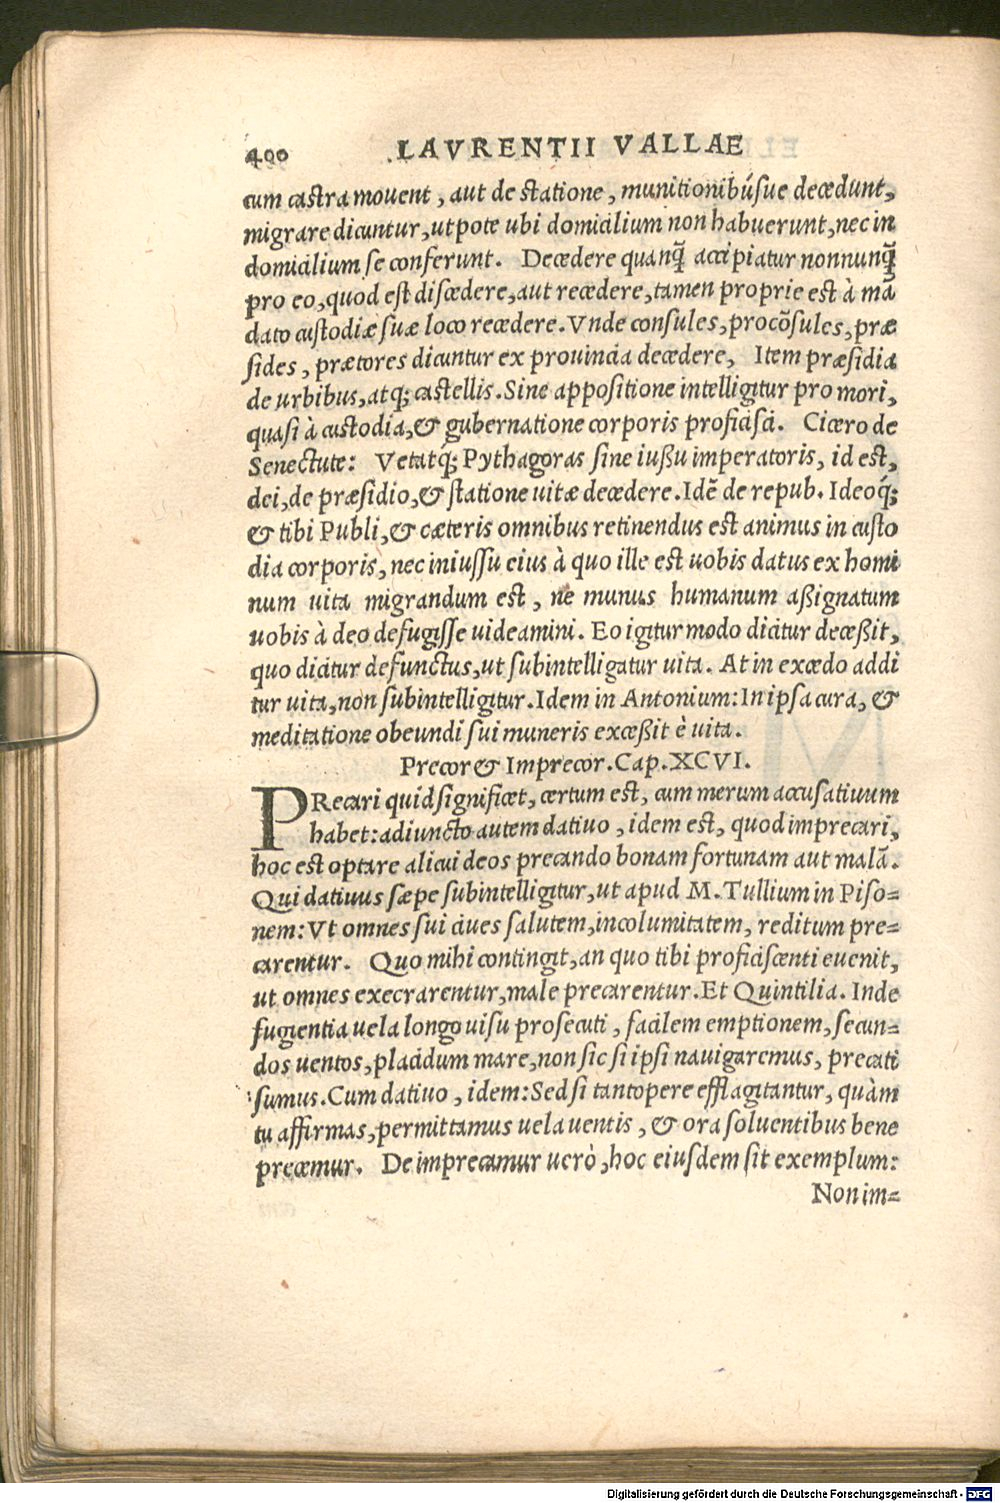 400 LAVRENTII VALLAE
cum castra mouent, aut de statione, munitionibúsue decedunt,
migrare dicuntur, utpote ubi domicilium non habuerunt, nec in
domicilium se conferunt. Decedere quanq̃ accipiatur nonnunq̃
pro eo, quod est discedere, aut recedere, tamen proprie est à mã
dato custodiæ suæ loco recedere. Vnde consules, procõsules, præ
sides, prætores dicuntur ex prouincia decedere, Item præsidia
de urbibus, atq; castellis. Sine appositione intelligitur pro mori,
quasi à custodia, & gubernatione corporis proficisci. Cicero de
Senectute: Vetatq; Pythagoras sine iußu imperatoris, id est,
dei, de præsidio, & statione uitæ decedere. Idẽ de repub. Ideoq́;
& tibi Publi, & cæteris omnibus retinendus est animus in custo
dia corporis, nec iniussu eius à quo ille est uobis datus ex homi
num uita migrandum est, ne munus humanum aßignatum
uobis à deo defugisse uideamini. Eo igitur modo dicitur deceßit,
quo dicitur defunctus, ut subintelligatur uita. At in excedo addi
tur uita, non subintelligitur. Idem in Antonium: In ipsa cura, &
meditatione obeundi sui muneris exceßit è uita.
Precor & Imprecor. Cap. XCVI.
PRecari quid significet, certum est, cum merum accusatiuum
habet: adiuncto autem datiuo, idem est, quod imprecari,
hoc est optare alicui deos precando bonam fortunam aut malã.
Qui datiuus sæpe subintelligitur, ut apud M. Tullium in Piso=
nem: Vt omnes sui ciues salutem, incolumitatem, reditum pre=
carentur. Quo mihi contingit, an quo tibi proficiscenti euenit,
ut omnes execrarentur, male precarentur. Et Quintilia. Inde
fugientia uela longo uisu prosecuti, facilem emptionem, secun=
dos uentos, placidum mare, non sic si ipsi nauigaremus, precati
sumus. Cum datiuo, idem: Sed si tantopere efflagitantur, quàm
tu affirmas, permittamus uela uentis, & ora soluentibus bene
precemur. De imprecamur uerò, hoc eiusdem sit exemplum:
Non im=
Digitalisierung gefördert durch die Deutsche Forschungsgemeinschaft - DFG